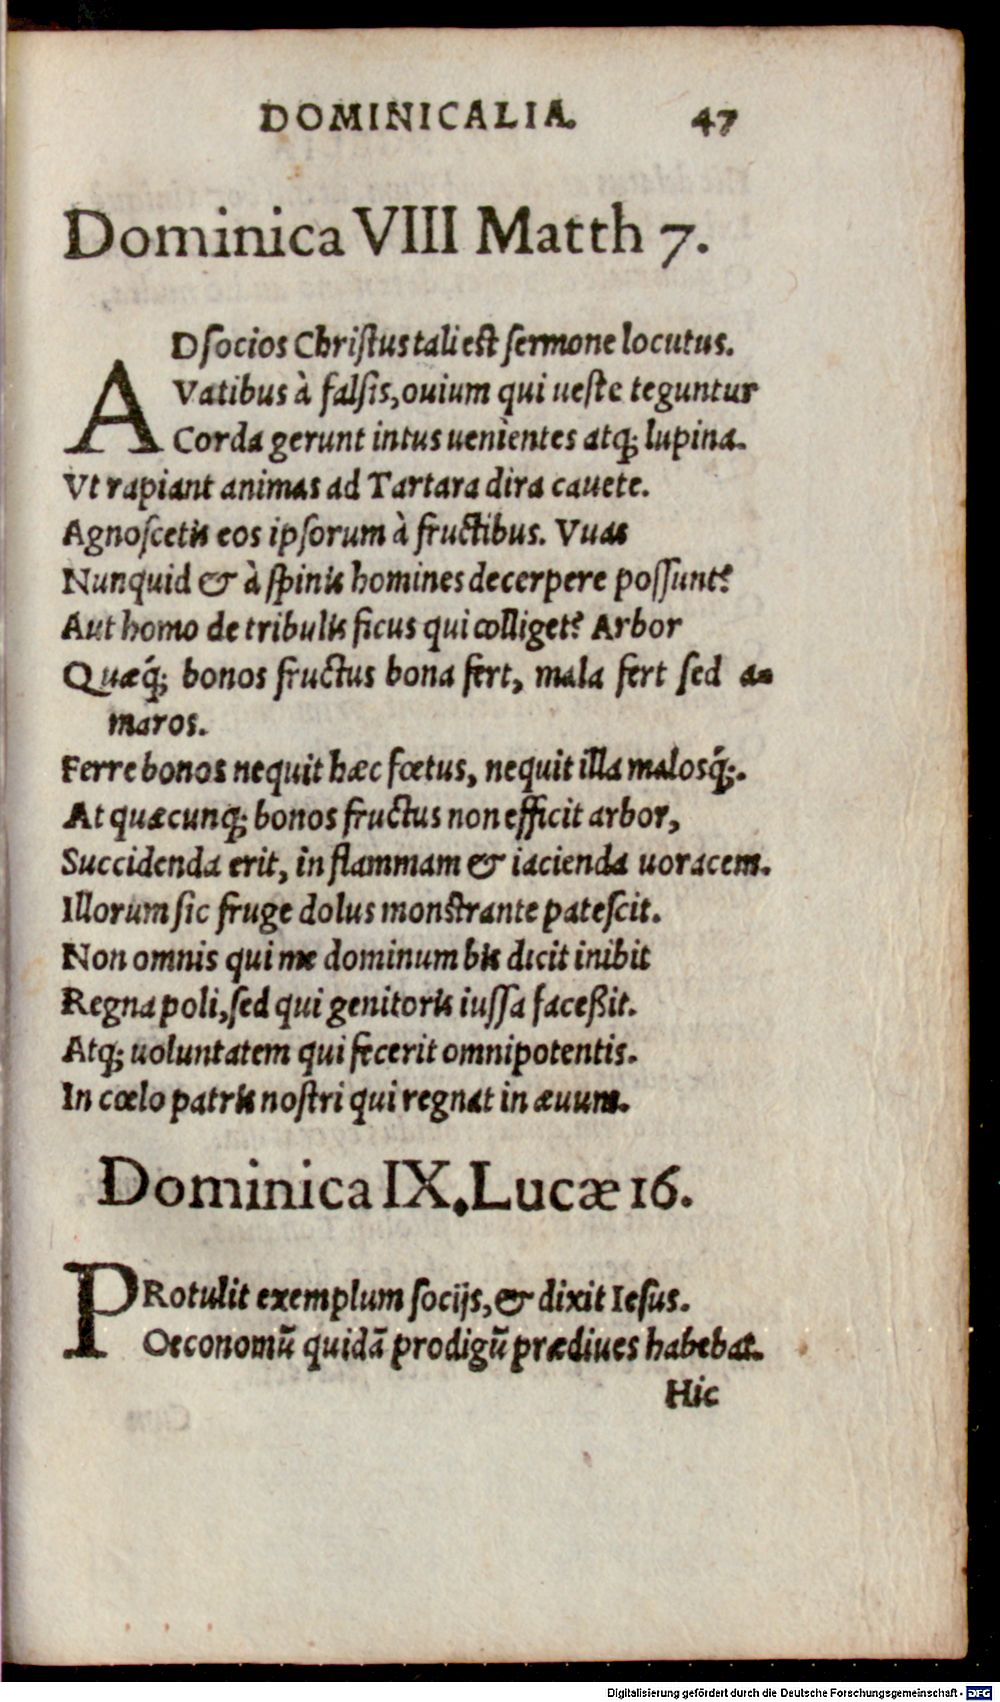 DOMINICALIA. 47
Dominica VIII Matth 7.
AD ſocios Chriſtus tali eſt ſermone locutus.
Vatibus à falſis, ouium qui ueſte teguntur
Corda gerunt intus uenientes atq́; lupina.
Vt rapiant animas ad Tartara dira cauete.
Agnoſcetis eos ipſorum à fructibus. Vuas
Nunquid & à ſpinis homines decerpere poſſunt?
Aut homo de tribulis ficus qui colliget? Arbor
Quæq́; bonos fructus bona fert, mala fert ſed a-
maros.
Ferre bonos nequit hæc fœtus, nequit illa malosq́;.
At quæcunq; bonos fructus non efficit arbor,
Succidenda erit, in flammam & iacienda uoracem.
Illorum ſic fruge dolus monſtrante pateſcit.
Non omnis qui me dominum bis dicit inibit
Regna poli, ſed qui genitoris iuſſa faceßit.
Atq; uoluntatem qui fecerit omnipotentis.
In cœlo patris noſtri qui regnat in æuum.
Dominica IX. Lucæ 16.
PRotulit exemplum ſocijs, & dixit Ieſus.
Oeconomũ quidã prodigũ prædiues habebat.
Hic
Digitalisierung gefördert durch die Deutsche Forschungsgemeinschaft - DFG